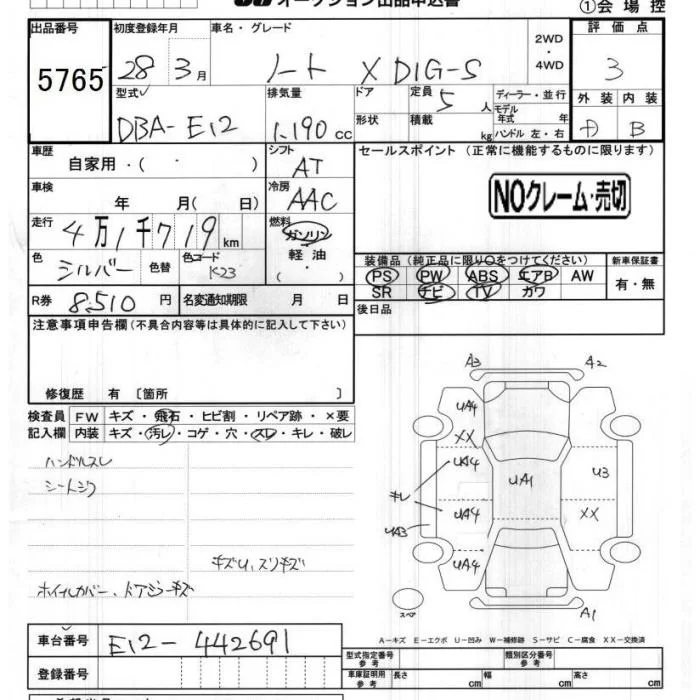 オークション出品申込書
①会場控
出品番号
5765
初度登録年月
28 年 3月
車名・グレード
ノート X DIG-S
2WD
・
4WD
評価点
3
型式
DBA-E12
排気量
1.190 cc
ドア
形状
定員
5 人
積載
kg
ディーラー・並行
モデル
年式 年
ハンドル 左・右
外装
内装
D
B
車歴
自家用・( )
シフト
AT
セールスポイント (正常に機能するものに限ります)
NOクレーム・売切
車検
年 月( 日)
冷房
AAC
走行
4万1千719 km
燃料
ガソリン
軽油
( ・ )
色
シルバー
色替
色コード
K23
装備品 (純正品に限り○をつけてください)
新車保証書
PS PW ABS エアB AW
SR ナビ TV カワ
有・無
R券
8.510 円
名変通知期限 月 日
後日品
注意事項申告欄 (不具合内容等は具体的に記入して下さい)
修復歴 有 〔箇所 〕
検査員
記入欄
FW キズ・飛石・ヒビ割・リペア跡・×要
内装 キズ・汚レ・コゲ・穴・スレ・キレ・破レ
ハンドルスレ
シートシワ
キズU、スリキズ
ホイルカバー、ドアジーキズ
A3
A2
UA4
XX
UA4
キレ
UA4
UA3
UA4
UA1
U3
XX
スペア
A1
A-キズ E-エクボ U-凹み W-補修跡 S-サビ C-腐食 XX-交換済
車台番号
E12-442691
登録番号
型式指定番号
参考
類別区分番号
参考
車庫証明用
参考
長さ cm
幅 cm
高さ cm